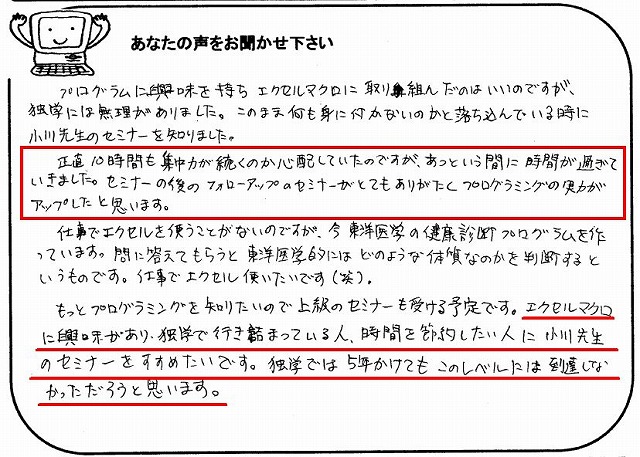 あなたの声をお聞かせ下さい
プログラムに興味を持ち エクセルマクロに取り組んだのはいいのですが、
独学には無理がありました。このまま何も身に付かないのかと落ち込んでいる時に
小川先生のセミナーを知りました。
正直10時間も集中力が続くのか心配していたのですが、あっという間に時間が過ぎて
いきました。セミナーの後のフォローアップのセミナーがとてもありがたく プログラミングの実力が
アップしたと思います。
仕事でエクセルを使うことがないのですが、今 東洋医学の健康診断プログラムを作
っています。問に答えてもらうと東洋医学的にはどのような体質なのかを判断すると
いうものです。仕事でエクセル使いたいです(笑)。
もっとプログラミングを知りたいので上級のセミナーも受ける予定です。エクセルマクロ
に興味があり、独学で行き詰まっている人、時間を節約したい人に小川先生
のセミナーをすすめたいです。独学では5年かけてもこのレベルには到達しな
かっただろうと思います。